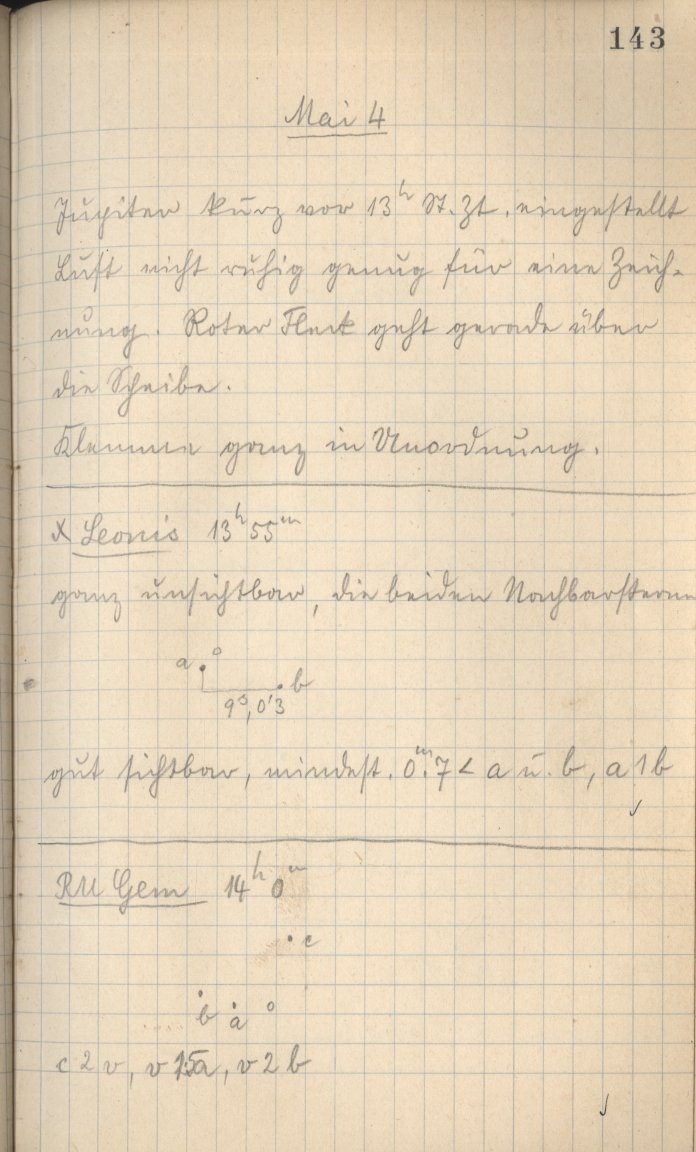 143
Mai 4
Jupiter kurz vor 13ʰ St. Zt. eingestellt
Luft nicht ruhig genug für eine Zeich-
nung. Roter Fleck geht gerade über
die Scheibe.
Klemme ganz in Unordnung.
X Leonis 13ʰ55ᵐ
ganz unsichtbar, die beiden Nachbarsterne
a
b
9ˢ,0'3
gut sichtbar, mindest. 0ᵐ.7 < a u. b, a 1 b
RU Gem 14ʰ 0ᵐ
c
b a
c 2 v, v a, v 2 b